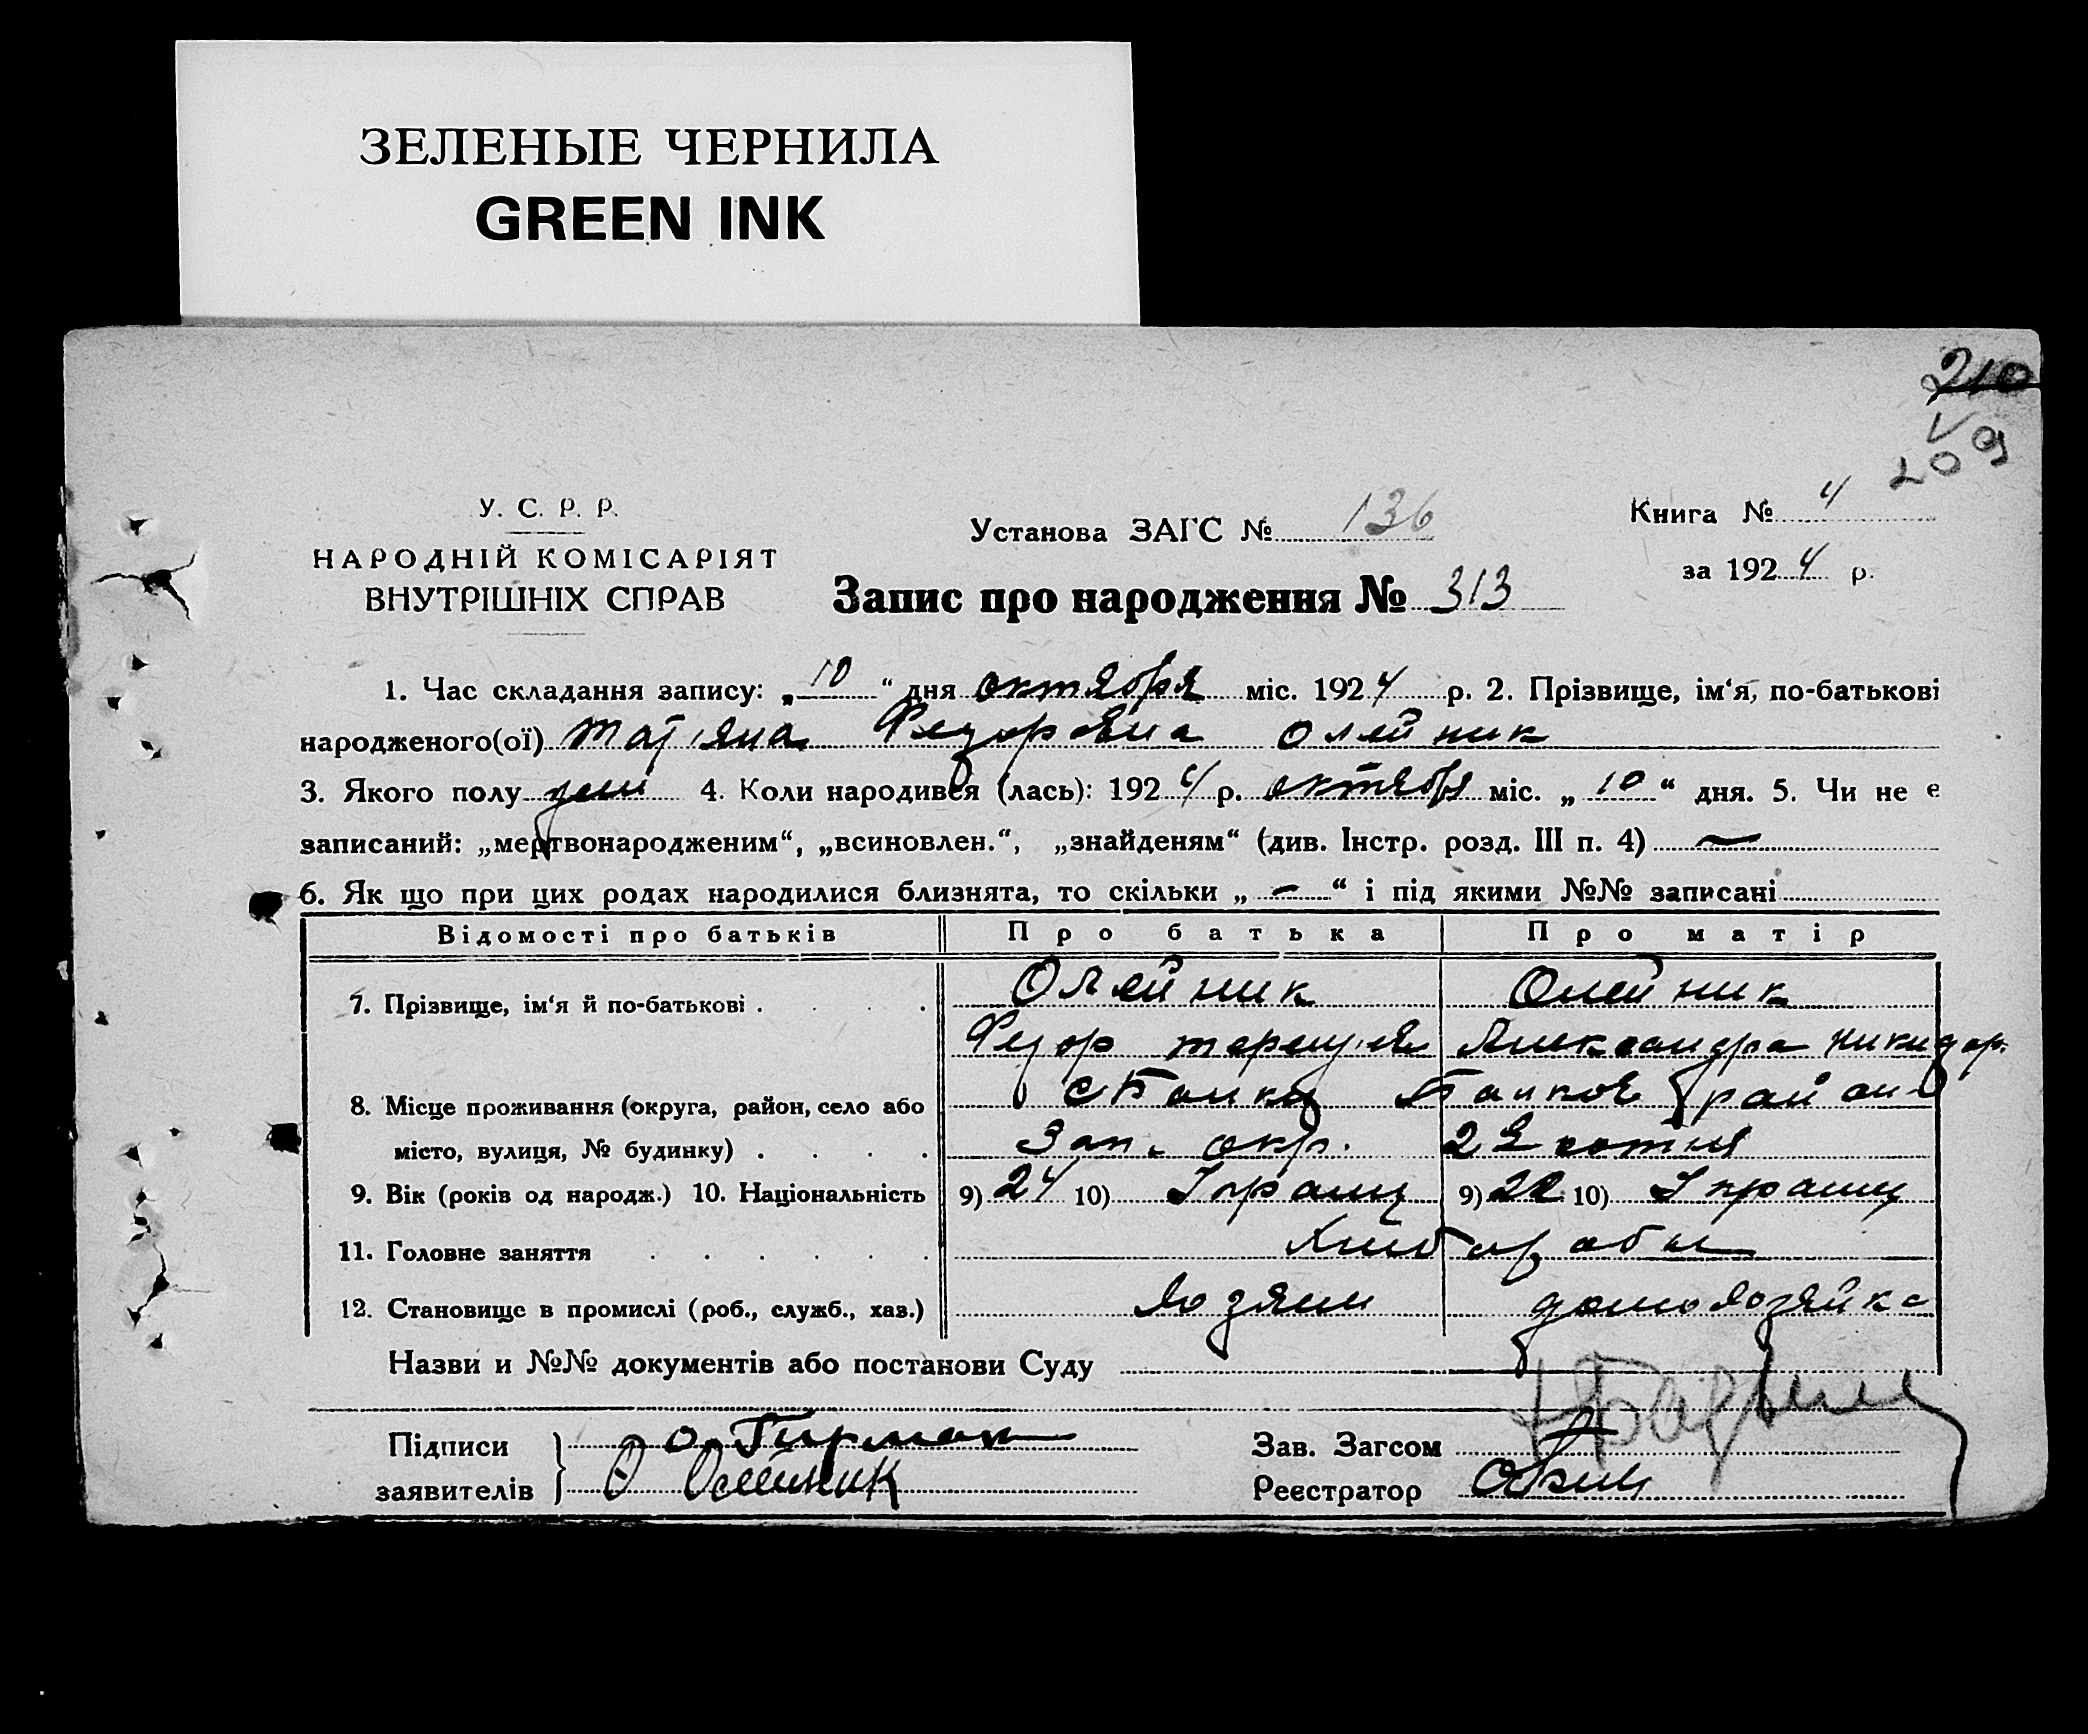 ЗЕЛЕНЫЕ ЧЕРНИЛА
GREEN INK
210
209
У. С. Р. Р.
НАРОДНІЙ КОМІСАРІЯТ
ВНУТРІШНІХ СПРАВ
Установа ЗАГС № 136
Книга № 4
за 1924 р.
Запис про народження № 313
1. Час складання запису: „10“ дня октября міс. 1924 р. 2. Прізвище, ім‘я, по-батькові
народженого(ої) Татіяна Федоровна Олейник
3. Якого полу жен 4. Коли народився (лась): 1924 р. октября міс. „10“ дня. 5. Чи не є
записаний: „мертвонародженим“, „всиновлен.“, „знайденям“ (див. Інстр. розд. III п. 4) —
6. Як що при цих родах народилися близнята, то скільки „—“ і під якими №№ записані
Відомості про батьків Про батька Про матір
7. Прізвище, ім‘я й по-батькові Олейник Олейник
Федор Александра Никифор.
8. Місце проживання (округа, район, село або с Балки Балков район
місто, вулиця, № будинку) Зап. окр. 2я сотня
9. Вік (років од народж.) 10. Національність 9) 24 10) Украин 9) 22 10) Украин
11. Головне заняття Хлебороби
12. Становище в промислі (роб., служб., хаз.) Хозяин домохозяйка
Назви и №№ документів або постанови Суду
Підписи Зав. Загсом
заявителів О Олейник Реєстратор